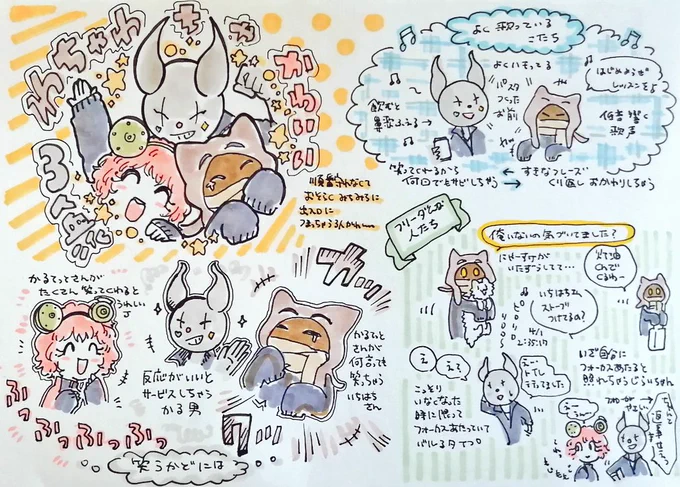 わちゃわちゃ
かわいい
3人衆
順番守れなくて
おそらくみちみちに
出入口に
つまっちゃうんだわ〜
かるてっとさんが
たくさん笑ってくれると
うれしい
J
反応がいいと
サービスしちゃう
かる男
かるてっと
さんが
何言っても
笑っちゃう
いちはち
さん
ふっふっふっふっ
笑うかどには
よく歌っている
こたち
よくいもってる
飲むと
鼻歌ふえる→
パスタ
つくった
お前
はじめようぜ
レッスンをう
何者 響く
歌声
笑ってくれるから
何回でもサビしちゃう
すきなフレーズ
くり返しおかわりしちゃう
フリーダムな
人たち
俺いないの気づいてました?
にせーずけが
いたずうしてて…
灯油
入れて
くるわ〜
いちはちさん
ストーブ
つけてるの?
ピロリロリロ
え?
えっ?
えー!
トイレ
行ってました
こっそり
いなくなった
時に限って
フォーカスあたっていて
バレるタイプ。
いざ自分に
フォーカスあたると
照れちゃうじぇいちゃん